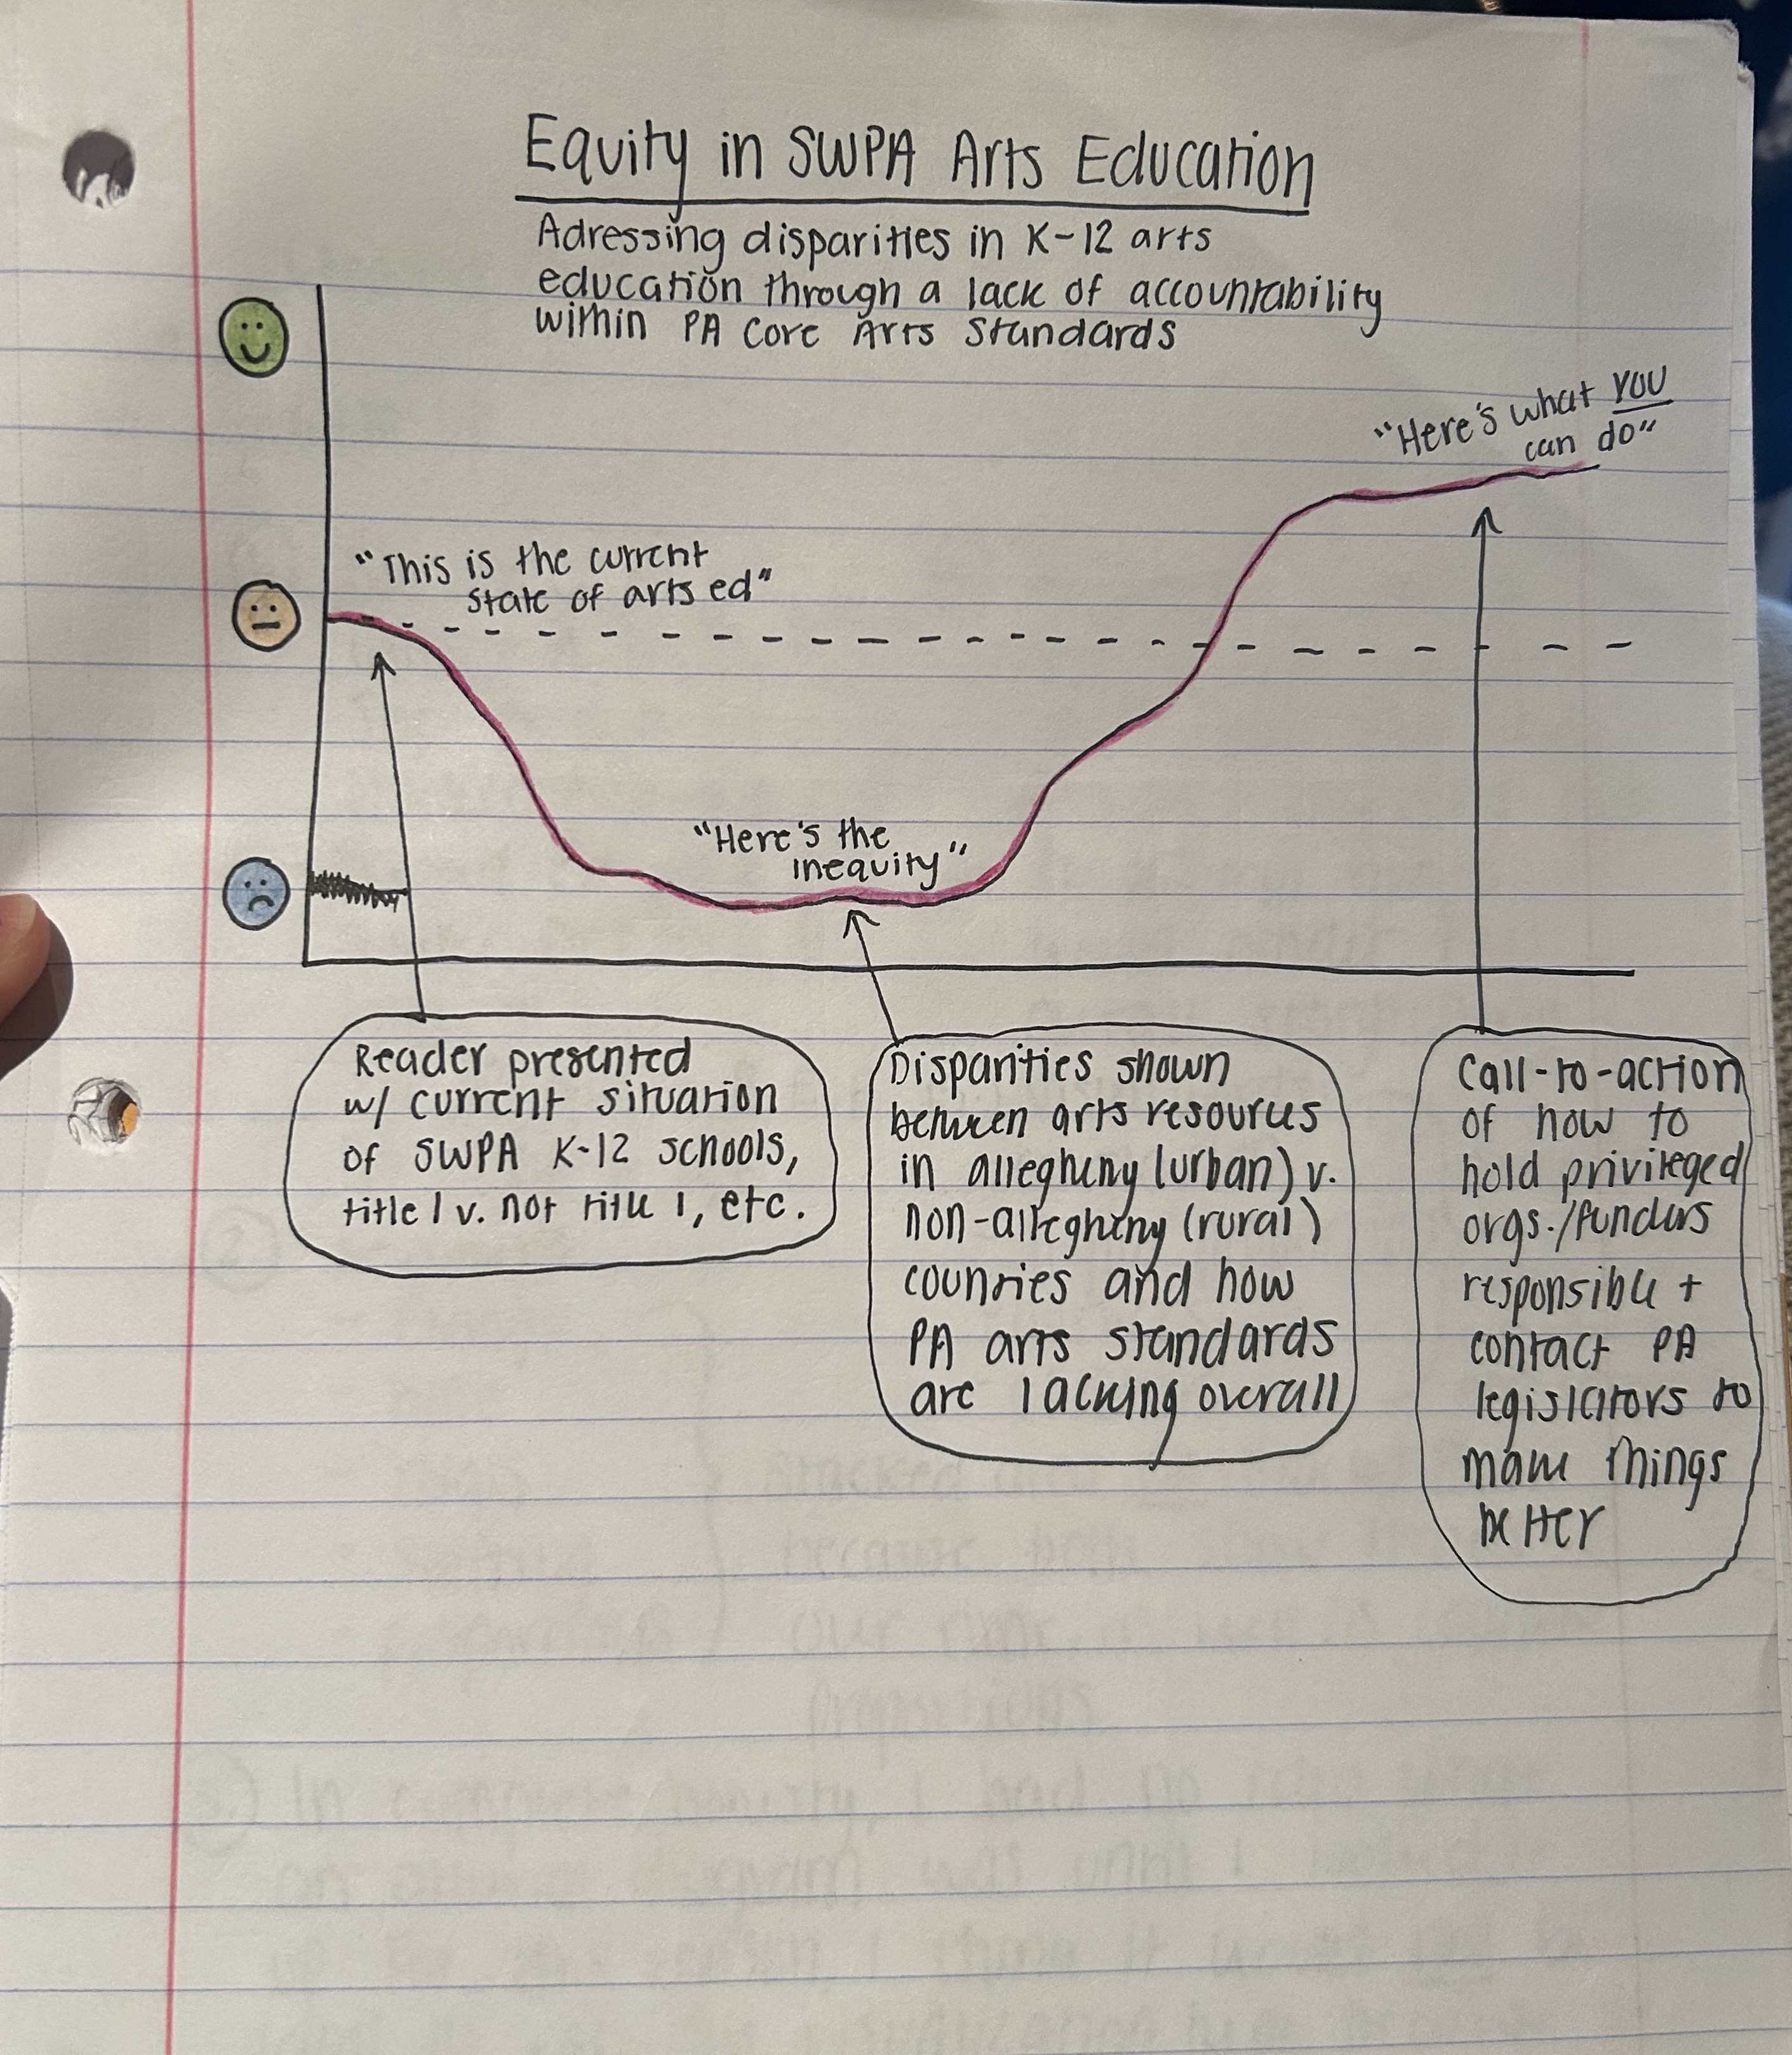 Equity in SWPA Arts Education
Adressing disparities in K-12 arts
education through a lack of accountability
within PA Core Arts Standards
"Here's what YOU
can do"
"This is the current
state of arts ed"
"Here's the
inequity"
Reader presented
w/ current situation
of SWPA K-12 schools,
title 1 v. not title 1, etc.
Disparities shown
between arts resources
in allegheny (urban) v.
non-allegheny (rural)
counties and how
PA arts standards
are lacking overall
Call-to-action
of how to
hold privileged
orgs./funders
responsible +
contact PA
legislators to
make things
better